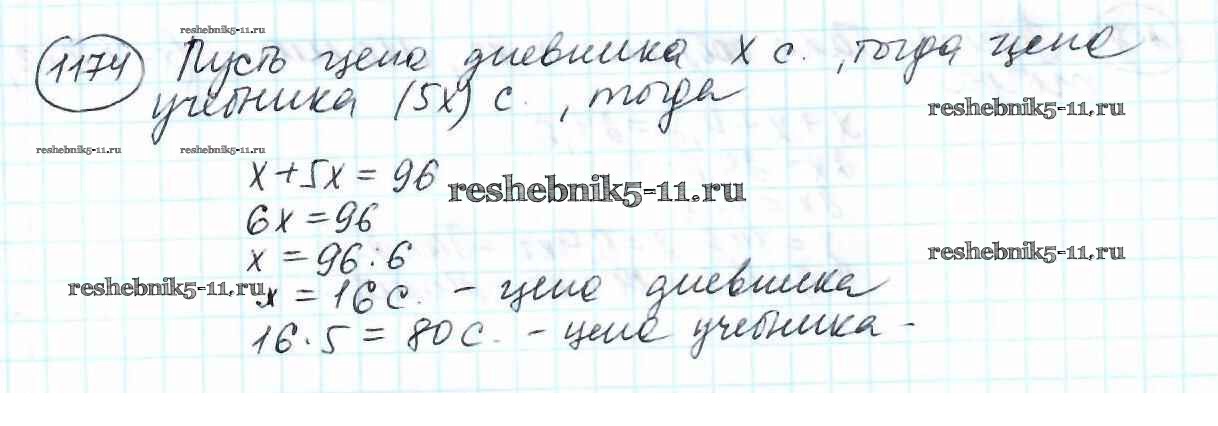 reshebnik5-11.ru
1174 Пусть цена дневника х с., тогда цена
учебника (5х) с., тогда
reshebnik5-11.ru
reshebnik5-11.ru reshebnik5-11.ru
х+5х=96
reshebnik5-11.ru
6х=96
х=96:6
reshebnik5-11.ru
reshebnik5-11.ru
х=16 с. - цена дневника
16·5=80 с. - цена учебника-